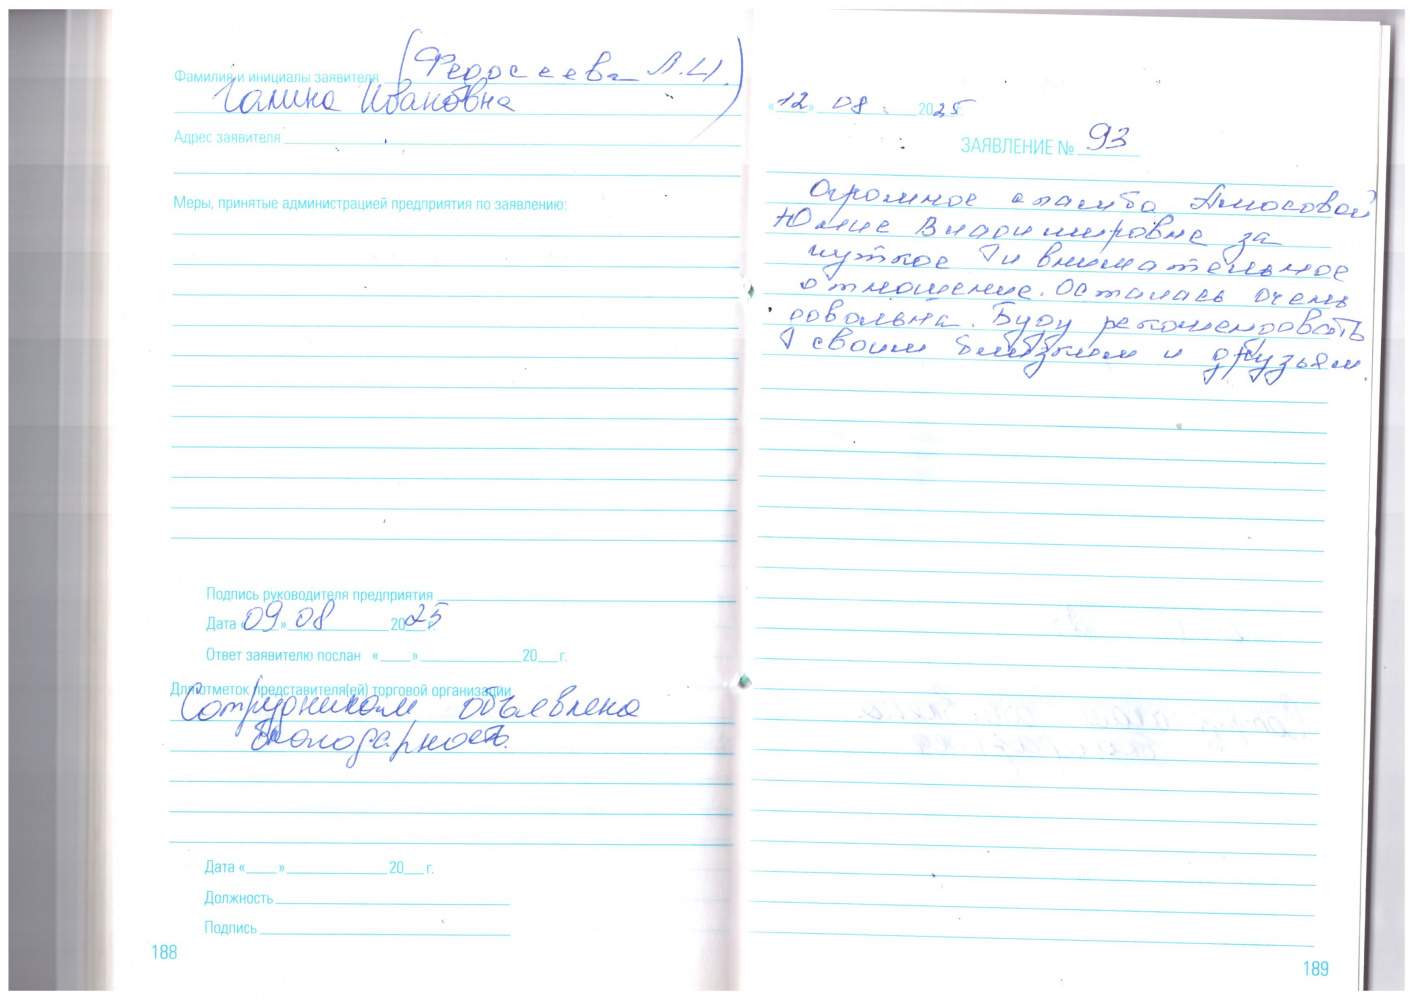 Фамилия и инициалы заявителя (Федосеева Л.И.)
Галина Ивановна
Адрес заявителя
Меры, принятые администрацией предприятия по заявлению:
Подпись руководителя предприятия
Дата «09» 08 2025 г.
Ответ заявителю послан «___» ___ 20__г.
Для отметок представителя(ей) торговой организации
Сотрудникам объявлена
благодарность.
Дата «___» ___ 20__г.
Должность
Подпись
188
«12» 08. 2025
ЗАЯВЛЕНИЕ № 93
Огромное спасибо Амосовой
Юлие Владимировне за
чуткое и внимательное
отношение. Осталась очень
довольна. Буду рекомендовать
своим близким и друзьям.
189